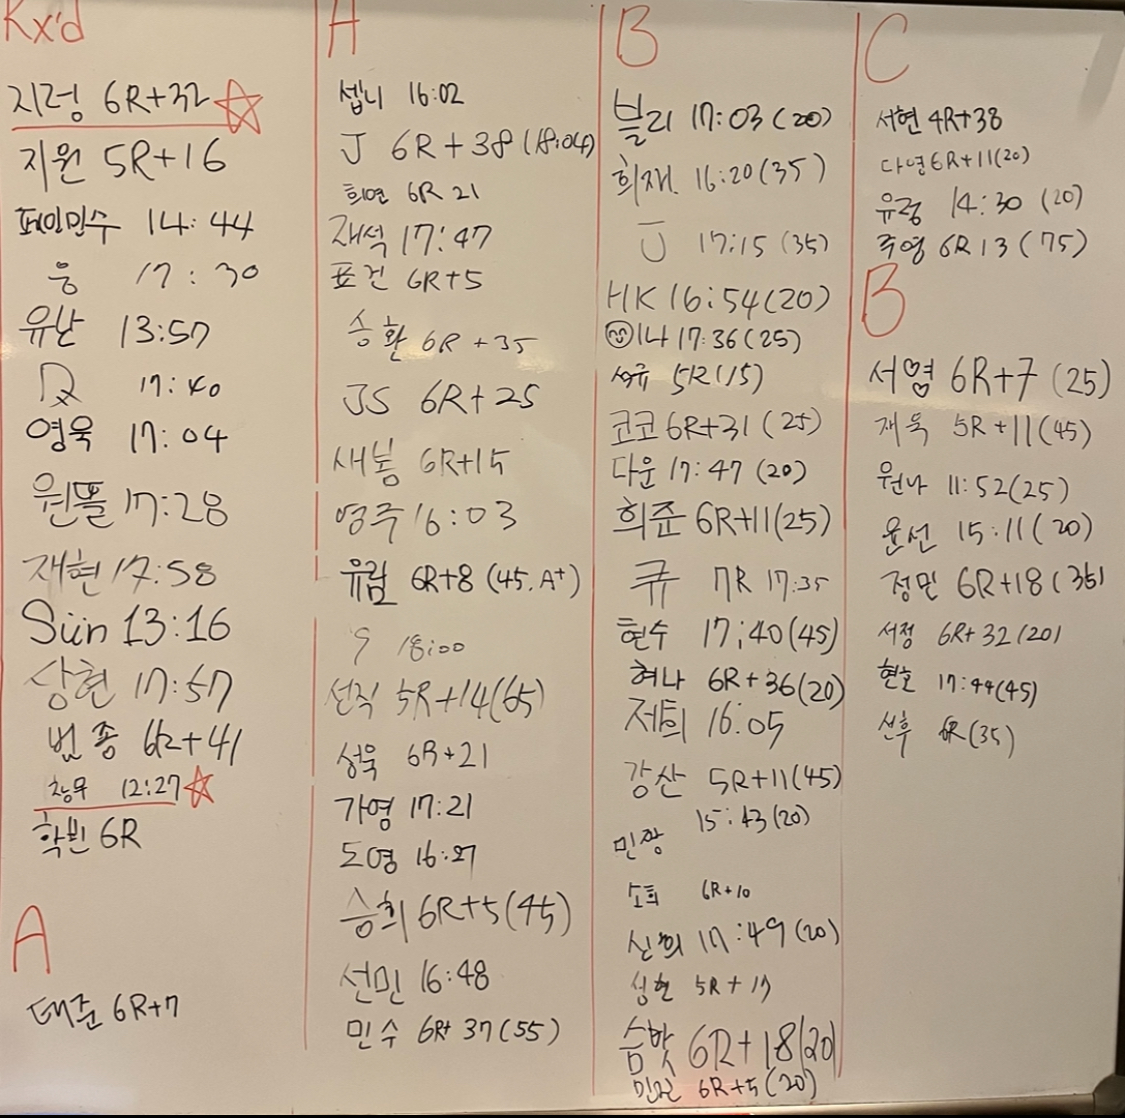 Rx'd
지령 6R+32
지원 5R+16
페인민수 14:44
웅 17:30
유난 13:57
17:40
영욱 17:04
원똘 17:28
재현 17:58
Sun 13:16
상현 17:57
범종 6R+41
창무 12:27
학빈 6R
A
태준 6R+7
A
셉니 16:02
J 6R+38 (18:04)
희연 6R 21
재석 17:47
표건 6R+5
승환 6R+35
JS 6R+25
새봄 6R+15
영주 16:03
유림 6R+8 (45. A+)
9 18:00
선직 5R+14(65)
성욱 6R+21
가영 17:21
도영 16:27
승희 6R+5(45)
선민 16:48
민수 6R+37(55)
B
블리 17:03(20)
희재. 16:20(35)
J 17:15 (35)
HK 16:54(20)
미나 17:36(25)
5R(15)
코코 6R+31(25)
다운 17:47 (20)
희준 6R+11(25)
큐 7R 17:35
현수 17:40(45)
혀나 6R+36(20)
제희 16:05
강산 5R+11(45)
민짱 15:43(20)
소희 6R+10
신희 17:49(20)
성현 5R+17
숨밧 6R+18(20)
6R+5(20)
C
서현 4R+38
다영 6R+11(20)
유정 14:30 (20)
주영 6R 13 (75)
B
서영 6R+7 (25)
재욱 5R+11(45)
원나 11:52(25)
윤선 15:11(20)
정민 6R+18(35)
서정 6R+32(20)
현호 17:44(45)
선후 6R(35)